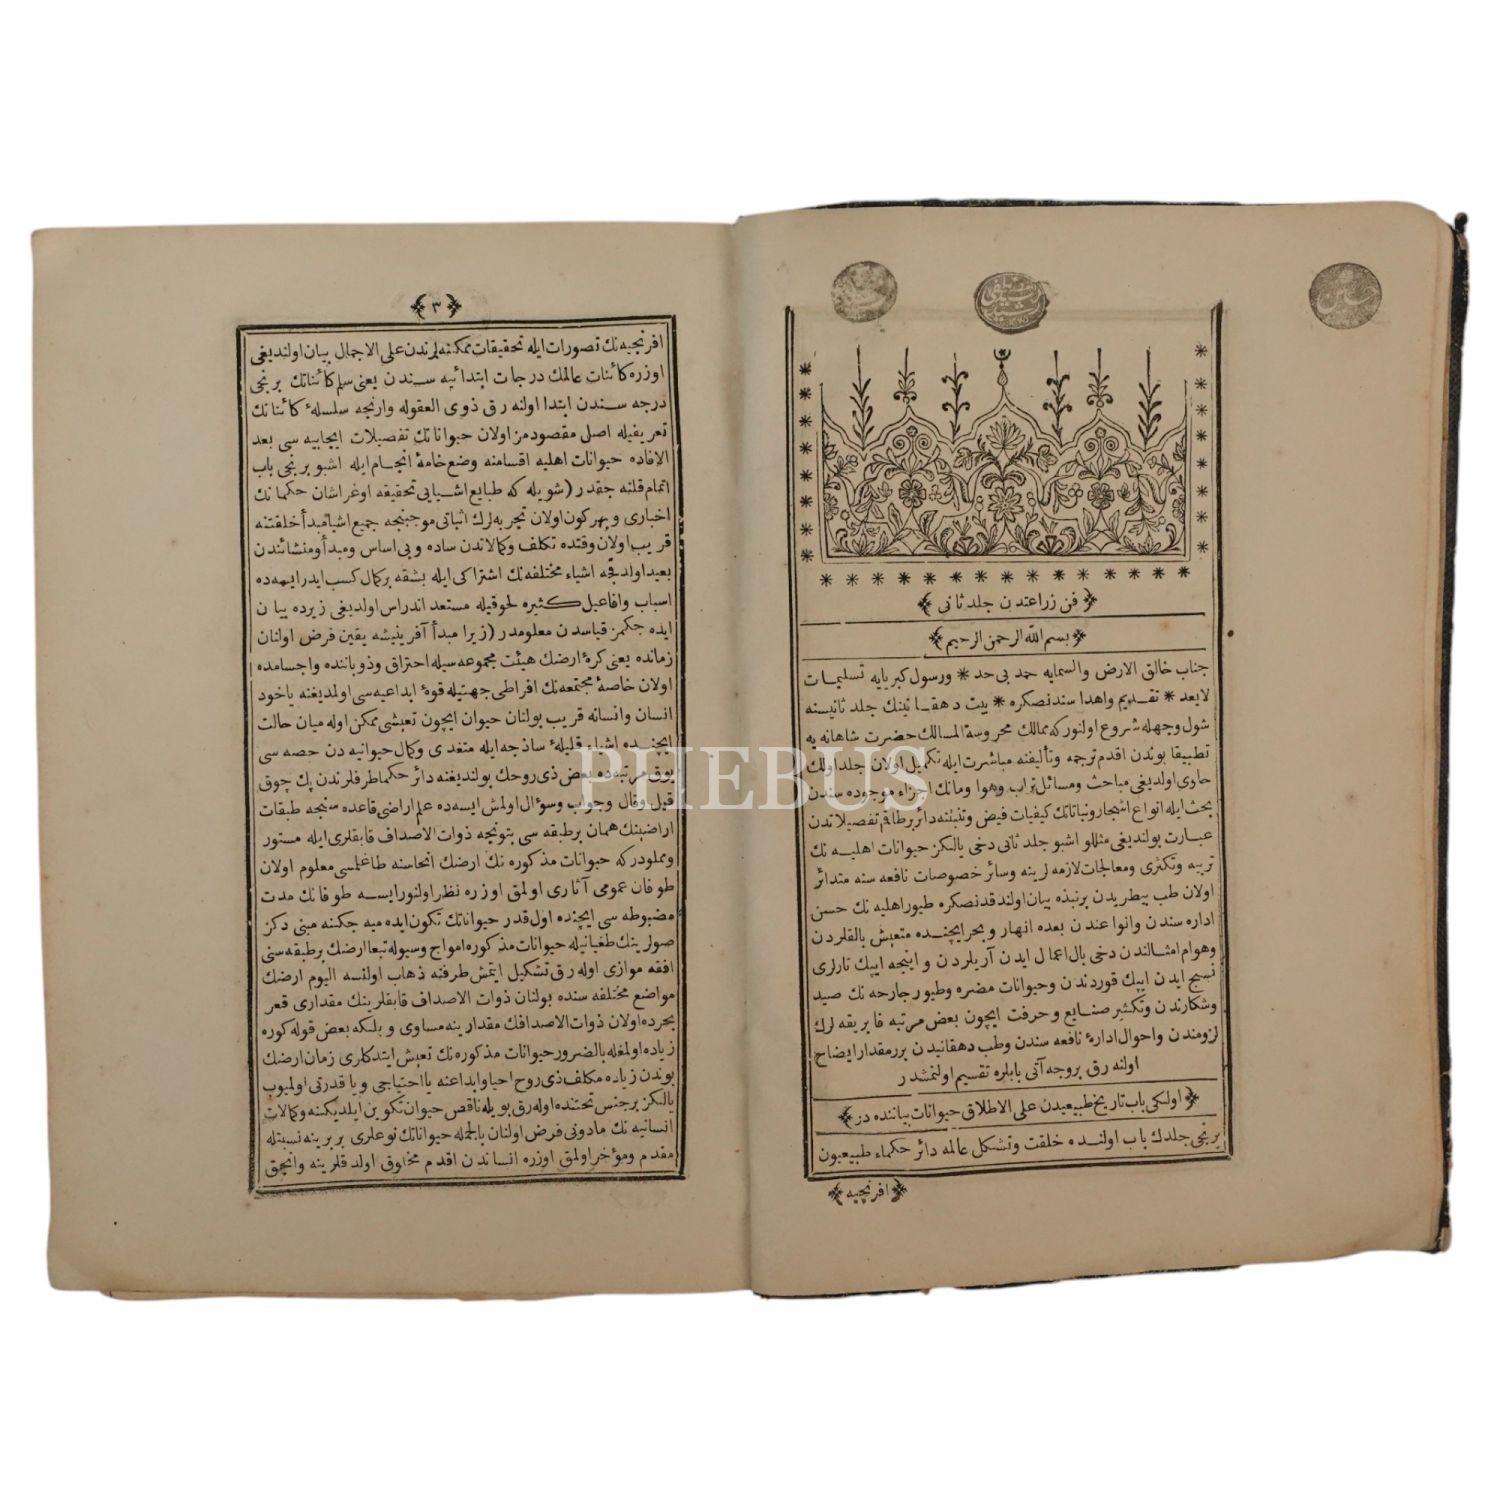 فن زراعتدن جلد ثانی
بسم الله الرحمن الرحيم
جناب خالق الارض والسمايه حمد بی حد * ورسول كبريايه تسليمات
لايعد * تقديم واهدا سندنصكره * بيت دهقانينك جلد ثانيسنه
شول وجهله شروع اولنوركه ممالك محروسة المسالك حضرت شاهانه يه
تطبيقا بوندن اقدم ترجمه وتأليفنه مباشرت ايله تكميل اولان جلد اولك
حاوی اولديغی مباحث ومسائل تراب وهوا ومانك اجزاء موجوده سندن
بحث ايله انواع اشجار ونباتاتك كيفيات فيض وتنبتنه دائر برطاقم تفصيلاتدن
عبارت بولنديغی مثللو اشبو جلد ثانی دخی يالكز حيوانات اهليه نك
تربيه وتكثری ومعالجات لازمه لرينه وسائر خصوصات نافعه سنه متدائر
اولان طب بيطريدن برنبذه بيان اولندقدنصكره طيور اهليه نك حسن
اداره سندن وانواعندن بعده انهار وبحر ايچنده متعيش بالقلردن
وهوام امثالندن دخی بال اعمال ايدن آريلردن و اينجه ايپك تارلری
نسيج ايدن ايپك قوردندن وحيوانات مضره وطيور جارحه نك صيد
وشكارندن وتكثير صنايع وحرفت ايچون بعض مرتبه فابريقه لرك
لزومندن واحوال ادارۀ نافعه سندن وطب دهقانيدن بررمقدار ايضاح
اولنه رق بروجه آتی بابلره تقسيم اولنمشدر
اولكی باب تاريخ طبيعيدن علی الاطلاق حيوانات بياننده در
برنجی جلدك باب اولنده خلقت وتشكل عالمه دائر حكماء طبيعيون
افرنجيه
٣
افرنجيه نك تصورات ايله تحقيقات ممكنه لرندن علی الاجمال بيان اولنديغی
اوزره كائنات عالمك درجات ابتدائيه سندن يعنی سلم كائناتك برنجی
درجه سندن ابتدا اولنه رق ذوی العقوله وارنجه سلسلۀ كائناتك
تعريفيله اصل مقصودمز اولان حيواناتك تفصيلات ايجابيه سی بعد
الافاده حيوانات اهليه اقسامنه وضع خامۀ انجام ايله اشبو برنجی باب
اتمام قلنه جقدر (شويله كه طبايع اشيايی تحقيقه اوغراشان حكمانك
اخباری وبهركون اولان تجربه لرك اثباتی موجبنجه جميع اشيا مبدأ خلقتنه
قريب اولان وقتده تكلف وكمالاتدن ساده وبی اساس ومبدأ ومنشائندن
بعيد اولدقچه اشياء مختلفه نك اشتراكی ايله بشقه بركمال كسب ايدر ايسه ده
اسباب وافاعيل كثيره لحوقيله مستعد اندراس اولديغی زيرده بيان
ايده جكمز قياسدن معلومدر (زيرا مبدأ آفرينيشه يقين فرض اولنان
زمانده يعنی كرۀ ارضك هيئت مجموعه سيله احتراق وذوباننده واجسامده
اولان خاصۀ مجتمعه نك افراطی جهتيله قوۀ ابداعيه سی اولمديغنه ياخود
انسان وانسانه قريب بولنان حيوان ايچون تعيشی ممكن اوله ميان حالت
ايچنده اشياء قليلۀ ساذجه ايله متغدی وكمال حيوانيه دن حصه سی
يوق مرتبه ده بعض ذی روحك بولنديغنه دائر حكما طرفلرندن پك چوق
قيل وقال وجواب وسؤال اولمش ايسه ده علم اراضی قاعده سنجه طبقات
اراضينك همان برطبقه سی بتونجه ذوات الاصداف قابقلری ايله مستور
ومملودركه حيوانات مذكوره نك ارضك انحاسنه طاغلمسی معلوم اولان
طوفان عمومی آثاری اولمق اوزره نظر اولنورايسه طوفانك مدت
مضبوطه سی ايچنده اول قدر حيواناتك تكون ايده ميه جكنه مبنی دكز
صولرينك طغيانيله حيوانات مذكوره امواج وسيوله تبعا ارضك برطبقه سنی
افقه موازی اوله رق تشكيل ايتمش طرفنه ذهاب اولنسه اليوم ارضك
مواضع مختلفه سنده بولنان ذوات الاصداف قابقلرينك مقداری قعر
بحرده اولان ذوات الاصدافك مقدارينه مساوی و بلكه بعض قوله كوره
زياده اولمغله بالضرور حيوانات مذكوره نك تعيش ايتدكلری زمان ارضك
بوندن زياده مكلف ذی روح احيا وابداعنه يا احتياجی ويا قدرتی اولميوب
يالكز برجنس تحتنده اوله رق بويله ناقص حيوان تكوين ايلديكنه وكمالات
انسانيه نك مادونی فرض اولنان بالجمله حيواناتك نوعلری بربرينه نسبتله
مقدم ومؤخر اولمق اوزره انساندن اقدم مخلوق اولدقلرينه وانجق
PHEBUS